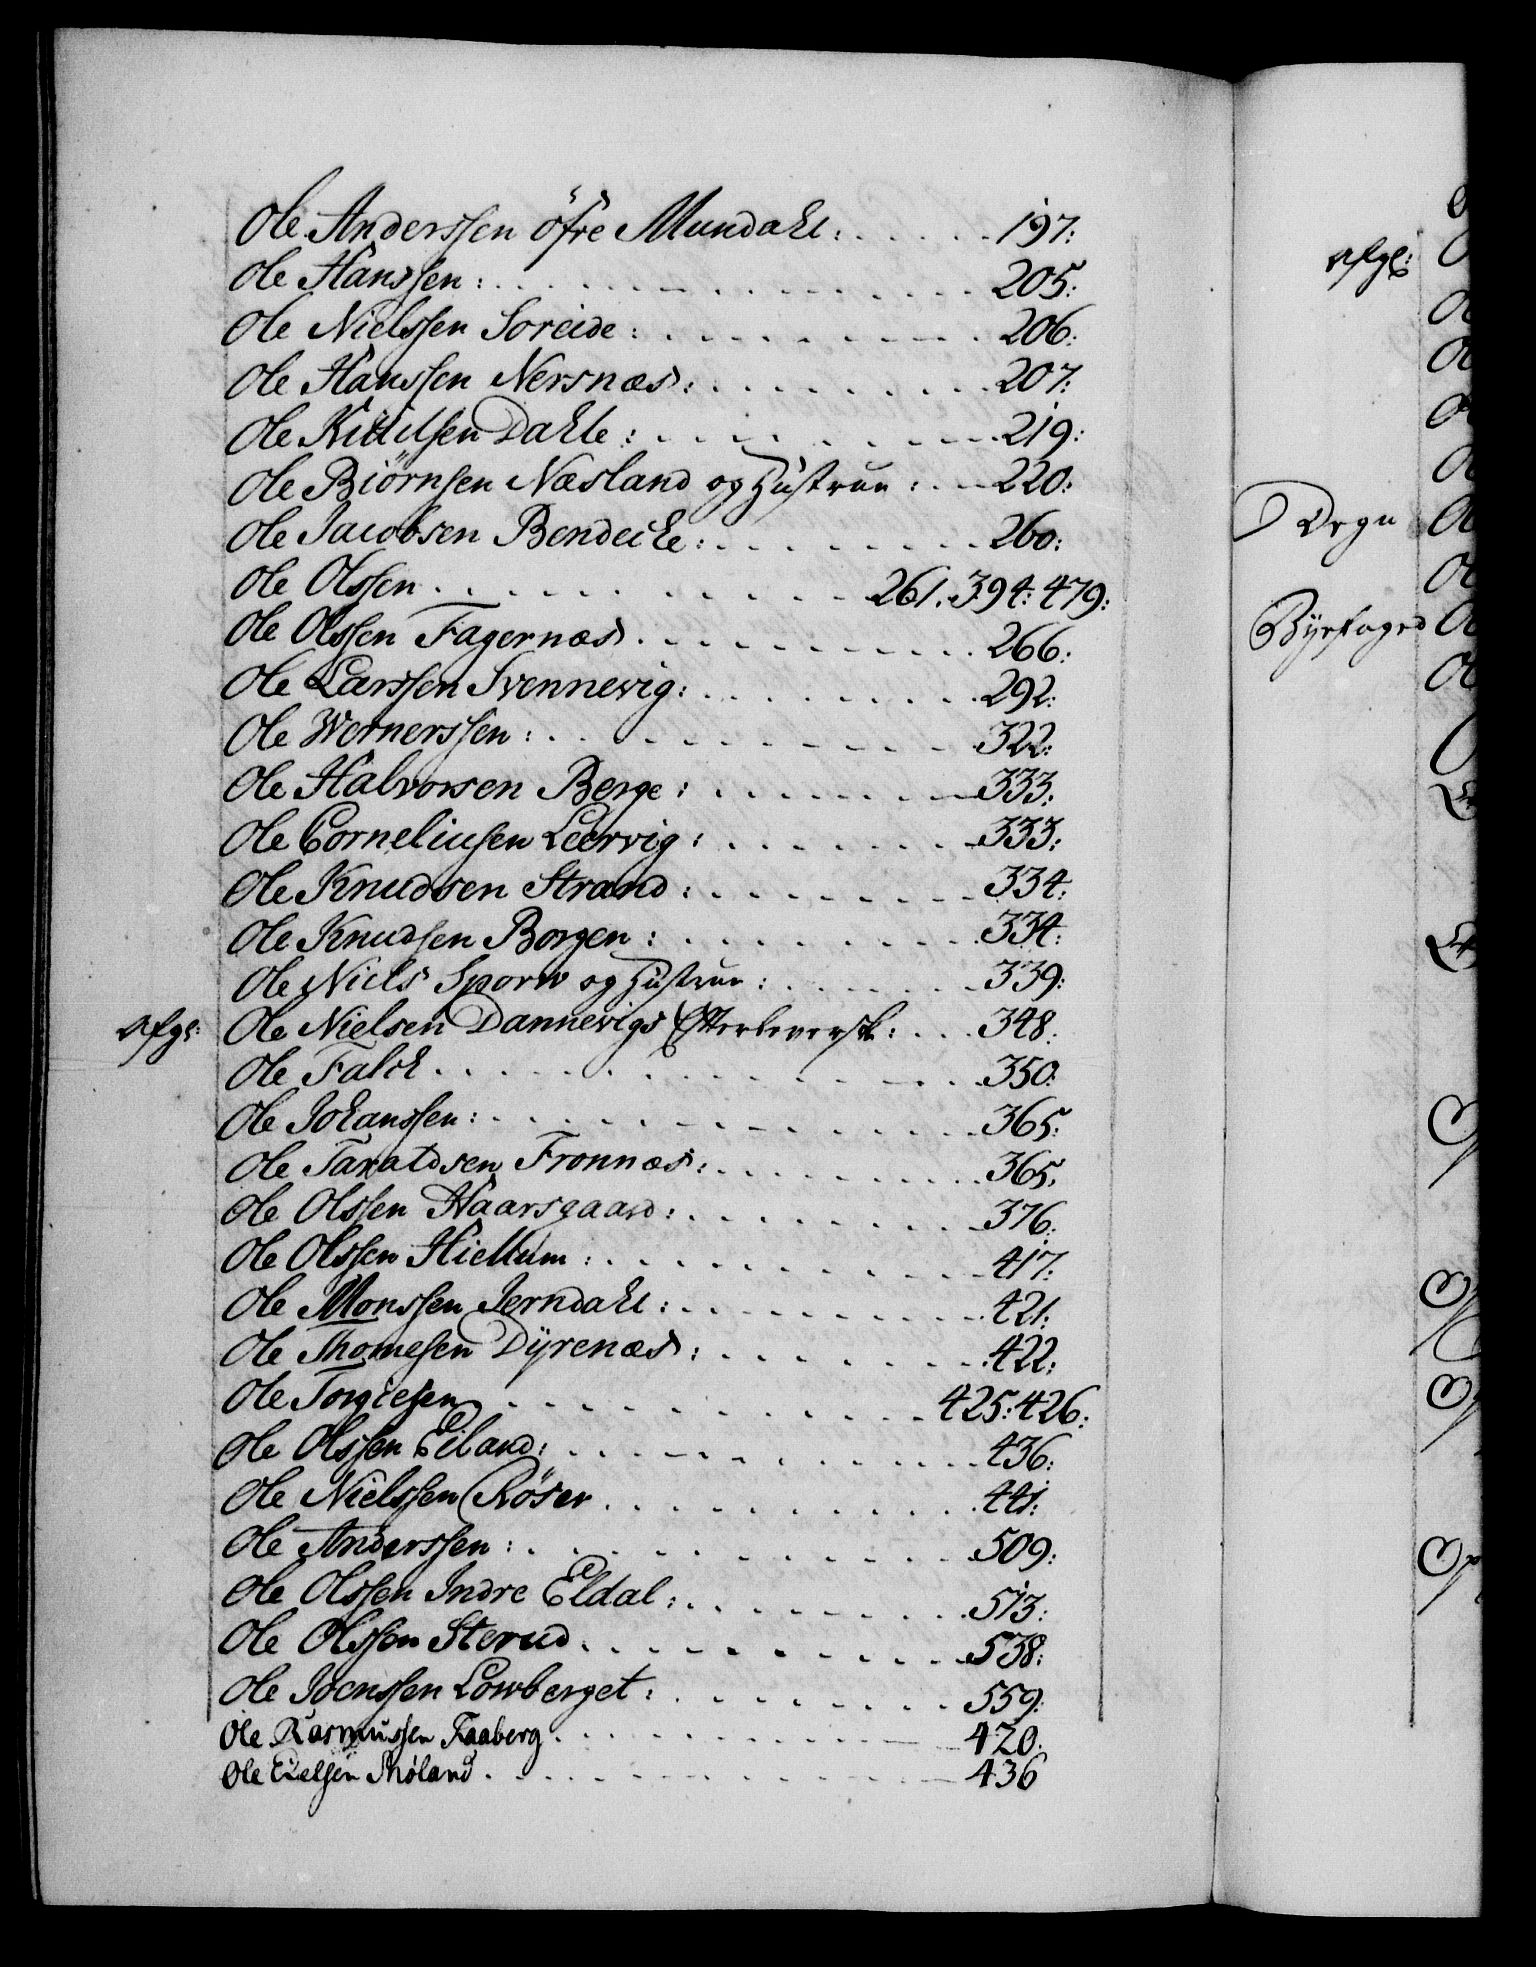 Ole Anderssen öfre Mundahl: . . . . . 197:
Ole Hanssen: . . . . . 205:
Ole Nielssen Soreide: . . . . . 206:
Ole Hanssen Nersnæs: . . . . . 207:
Ole Kittilsen Dahle: . . . . . 219:
Ole Biörnsen Næsland og Hustrue: . . 220:
Ole Jacobsen Bendecke: . . . . . 260:
Ole Olssen . . . . . 261. 394: 479:
Ole Olssen Fagernæs . . . . . 266:
Ole Larssen Svennevig: . . . . . 292:
Ole Wernerssen: . . . . . 322:
Ole Halvorsen Berge: . . . . . 333:
Ole Corneliusen Leervig: . . . . . 333:
Ole Knudsen Strand: . . . . . 334:
Ole Knudsen Borgen: . . . . . 334:
Ole Niels Sporw og Hustrue: . . . . . 339:
afgl: Ole Nielsen Dannevigs Efterleversk: . . . 348.
Ole Falck . . . . . 350:
Ole Johanssen: . . . . . 365:
Ole Taraldsen Fronnæs: . . . . . 365.
Ole Olssen Haarsgaard: . . . . . 376.
Ole Olssen Hiellum: . . . . . 417:
Ole Monssen Jerndahl: . . . . . 421:
Ole Thomesen Dÿrenæs: . . . . . 422:
Ole Torgiesen . . . . . 425: 426:
Ole Olssen Eiland: . . . . . 436:
Ole Nielssen Röser . . . . . 441:
Ole Anderssen: . . . . . 509:
Ole Olssen Indre Eldal: . . . . . 513:
Ole Olssen Sterud . . . . . 538:
Ole Joenssen Lowberget: . . . . . 559:
Ole Rasmussen Faaberg . . . . . 420.
Ole Eielsen Møland . . . . . 436
afgl:
Degn
Bÿefoged